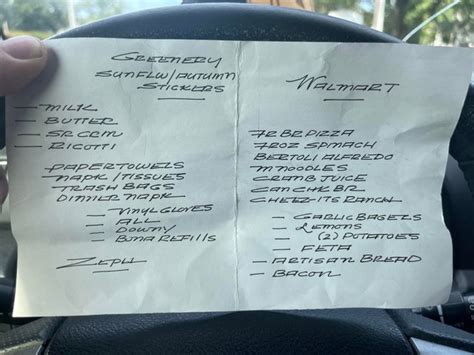 GREENERY
SUNFLW/AUTUMN
STICKERS
— MILK
— BUTTER
— SR CRM
— RICOTTI
PAPERTOWELS
NAPK/TISSUES
TRASH BAGS
DINNER NAPK
— VINYL GLOVES
— ALL
— DOWNY
— BIMA REFILLS
ZEPH
WALMART
FR BR PIZZA
FROZ SPINACH
BERTOLI ALFREDO
M NOODLES
CRANB JUICE
CAN CHK BR
CHEEZ-ITS RANCH
— GARLIC BAGELS
— LEMONS
— (2) POTATOES
— FETA
— ARTISAN BREAD
— BACON